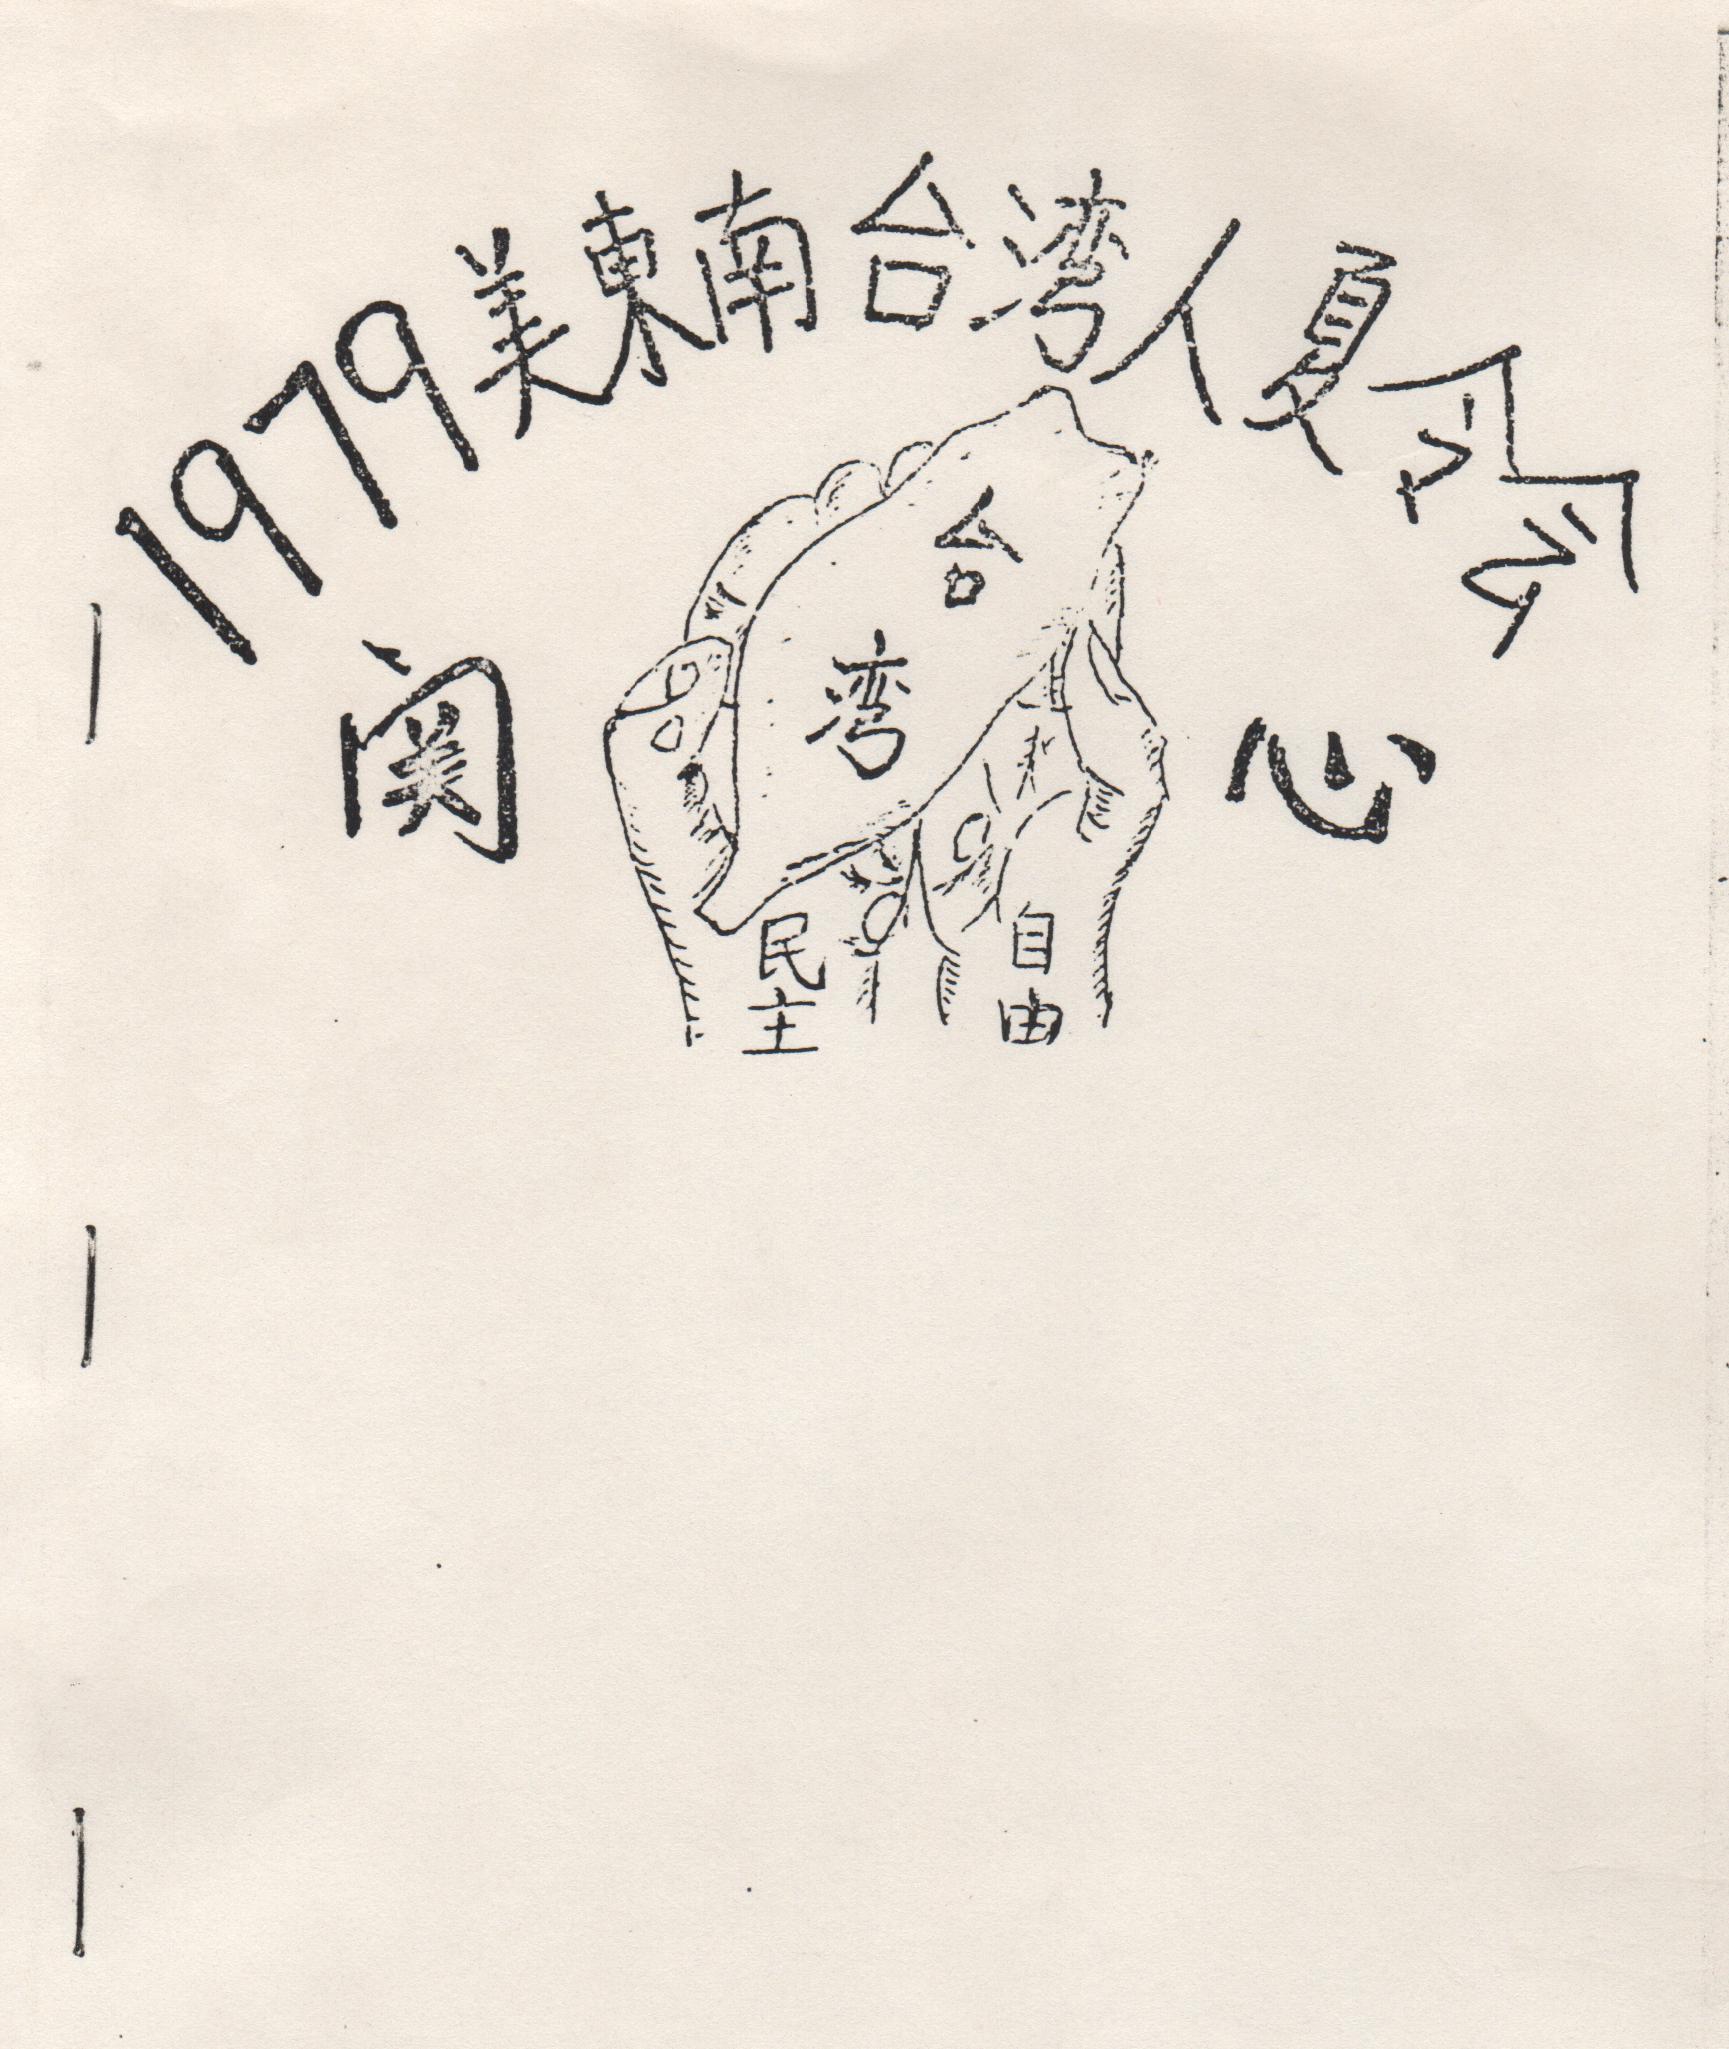 1979美東南台湾人夏令会
関心
台湾
民主
自由